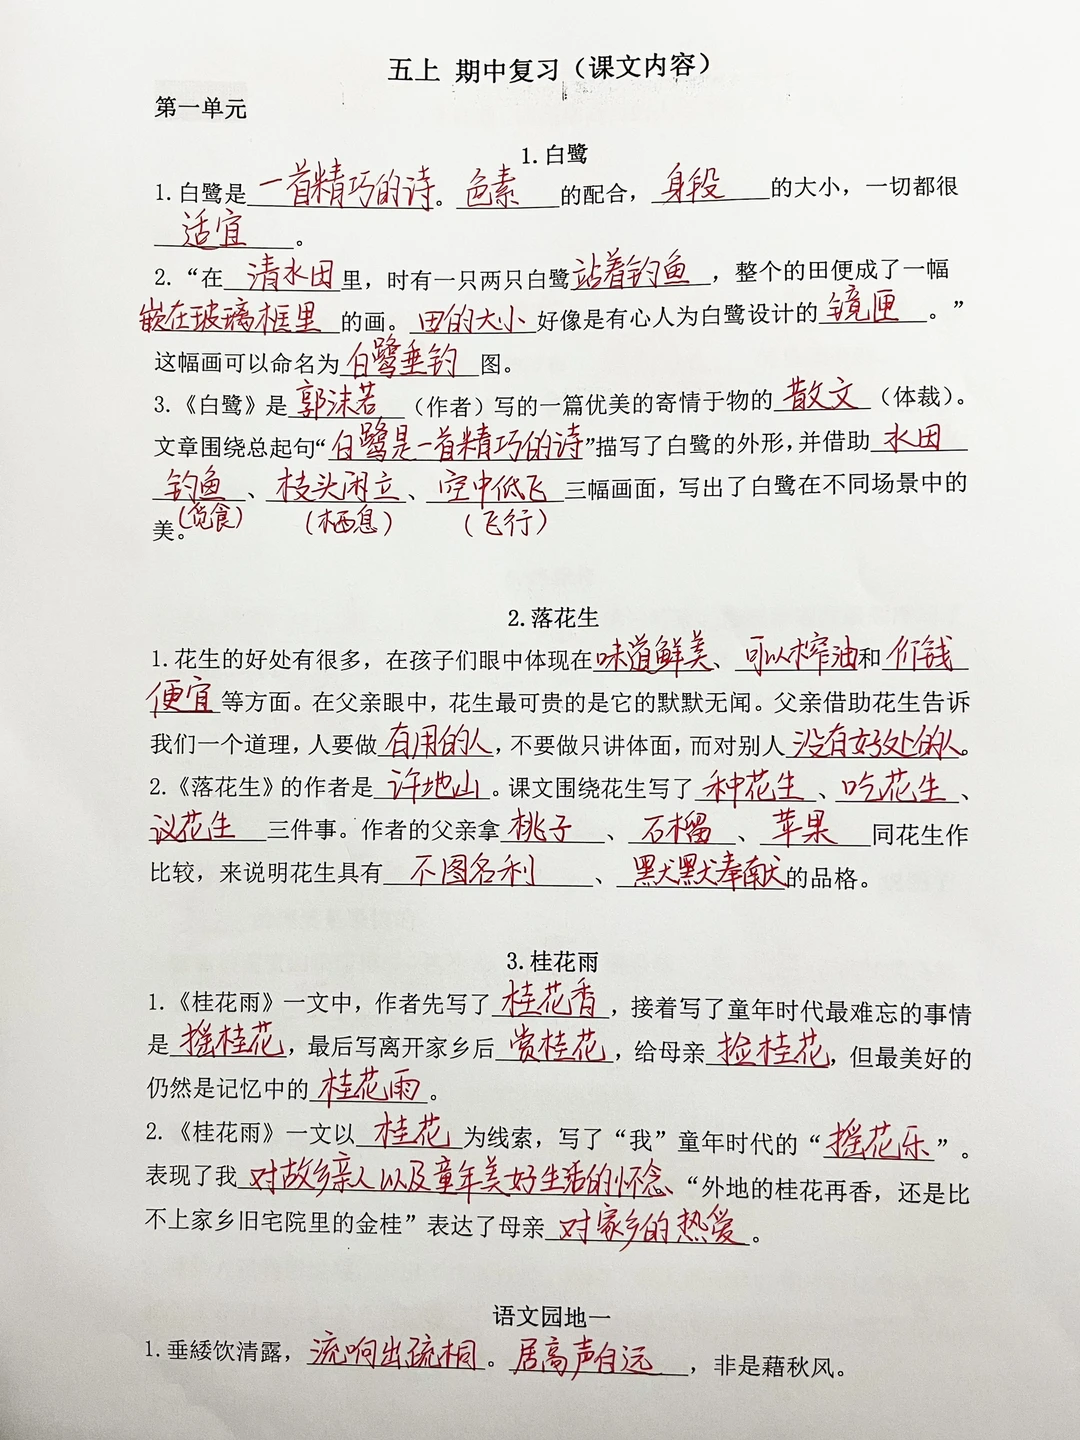 五上 期中复习（课文内容）
第一单元
1.白鹭
1.白鹭是一首精巧的诗。色素的配合，身段的大小，一切都很
适宜。
2.“在清水田里，时有一只两只白鹭站着钓鱼，整个的田便成了一幅
嵌在玻璃框里的画。田的大小好像是有心人为白鹭设计的镜匣。”
这幅画可以命名为白鹭垂钓图。
3.《白鹭》是郭沫若（作者）写的一篇优美的寄情于物的散文（体裁）。
文章围绕总起句“白鹭是一首精巧的诗”描写了白鹭的外形，并借助水田
钓鱼、枝头闲立、空中低飞三幅画面，写出了白鹭在不同场景中的
美。（觅食）（栖息）（飞行）
2.落花生
1.花生的好处有很多，在孩子们眼中体现在味道鲜美、可以榨油和价钱
便宜等方面。在父亲眼中，花生最可贵的是它的默默无闻。父亲借助花生告诉
我们一个道理，人要做有用的人，不要做只讲体面，而对别人没有好处的人。
2.《落花生》的作者是许地山。课文围绕花生写了种花生、吃花生、
议花生三件事。作者的父亲拿桃子、石榴、苹果同花生作
比较，来说明花生具有不图名利、默默奉献的品格。
3.桂花雨
1.《桂花雨》一文中，作者先写了桂花香，接着写了童年时代最难忘的事情
是摇桂花，最后写离开家乡后赏桂花，给母亲捡桂花，但最美好的
仍然是记忆中的桂花雨。
2.《桂花雨》一文以桂花为线索，写了“我”童年时代的“摇花乐”。
表现了我对故乡亲人以及童年美好生活的怀念、“外地的桂花再香，还是比
不上家乡旧宅院里的金桂”表达了母亲对家乡的热爱。
语文园地一
1.垂緌饮清露，流响出疏桐。居高声自远，非是藉秋风。